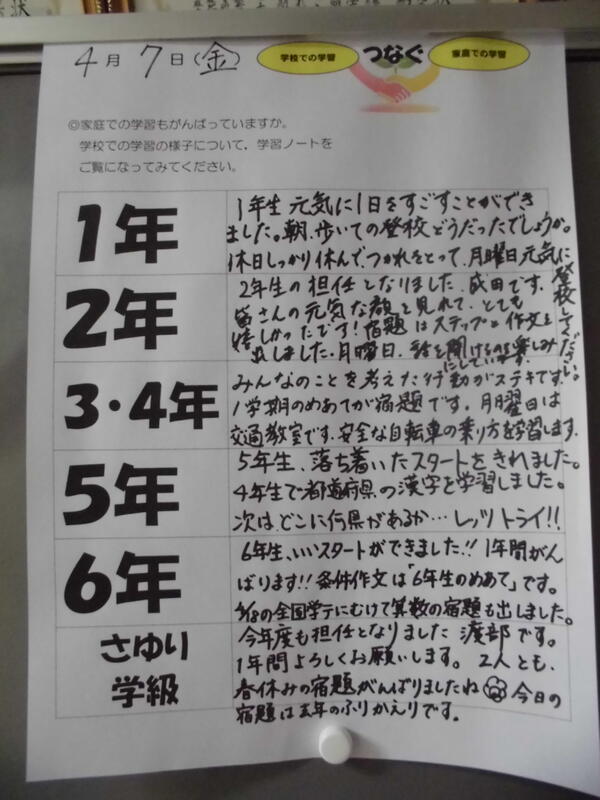 4月7日(金)
学校での学習 つなぐ 家庭での学習
◎家庭での学習もがんばっていますか。
学校での学習の様子について，学習ノートを
ご覧になってみてください。
1年
1年生 元気に1日をすごすことができ
ました。朝、歩いての登校どうだったでしょうか。
休日しっかり休んで、つかれをとって、月曜日元気に
登校してください。
2年
2年生の担任となりました、成田です。
皆さんの元気な顔を見れて、とても
嬉しかったです!宿題はステップと作文を
出しました。月曜日、話を聞けるのを楽しみ
にしています。
3・4年
みんなのことを考えた行動がステキです。
1学期のめあてが宿題です。月曜日は
交通教室です。安全な自転車の乗り方を学習します。
5年
5年生、落ち着いたスタートをきれました。
4年生で都道府県の漢字を学習しました。
次は、どこに何県があるか…レッツトライ!!
6年
6年生、いいスタートができました!!1年間がん
ばります!!条件作文は「6年生のめあて」です。
4/18の全国学テにむけて算数の宿題も出しました。
さゆり
学級
今年度も担任となりました 渡部です。
1年間よろしくお願いします。2人とも、
春休みの宿題がんばりましたね 今日の
宿題は去年のふりかえりです。